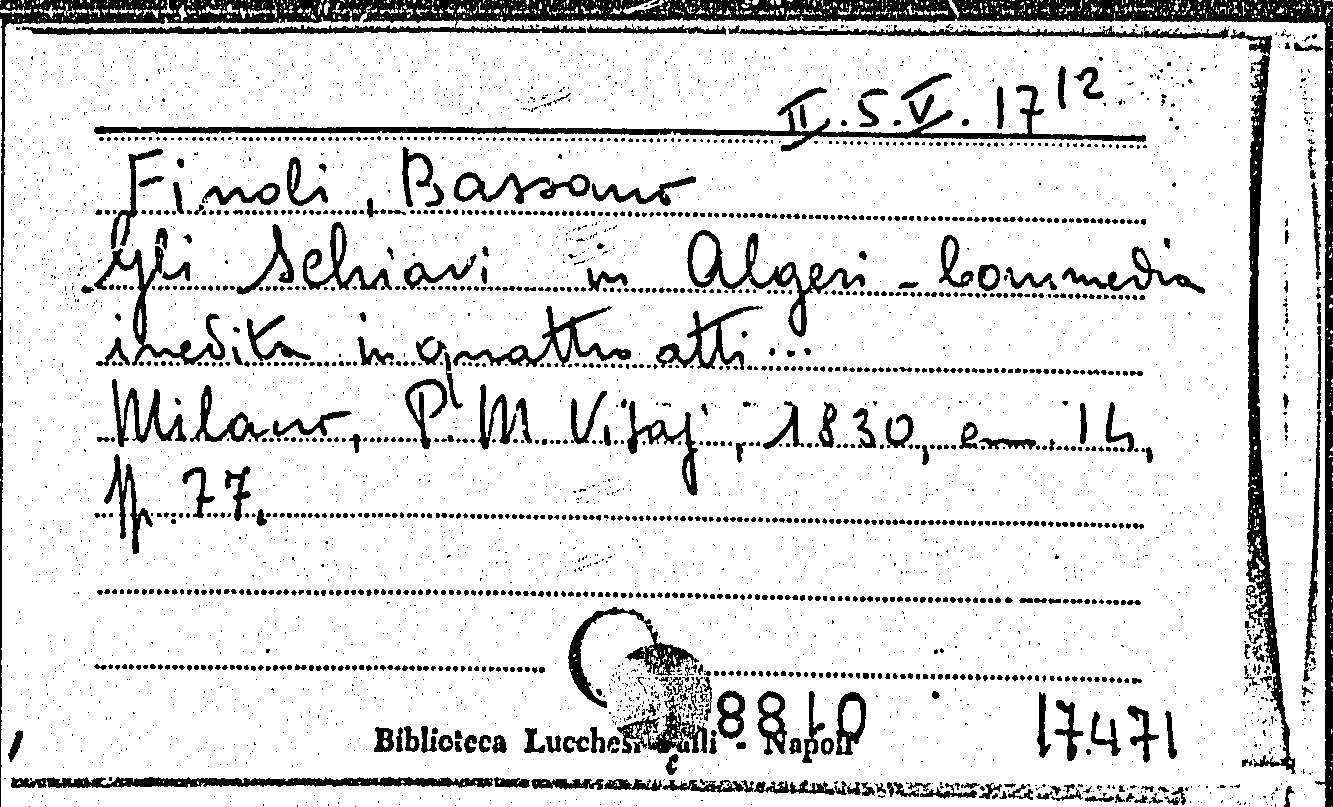 II.S.V. 17¹²
Finoli, Bassano
Gli Schiavi in Algeri - Commedia
inedita in quattro atti...
Milano, P. M. Visaj, 1830, cm. 14,
pp. 77.
8810
17.471
Biblioteca Lucchesi Palli - Napoli